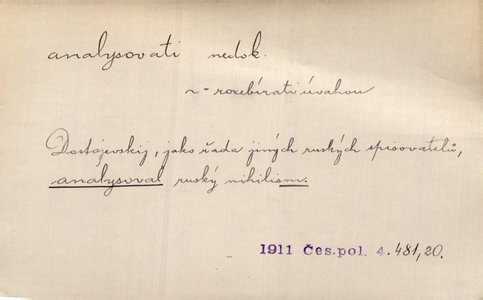 analysovati nedok.
~ - rozebírati úvahou
Dostojevskij, jako řada jiných ruských spisovatelů,
analysoval ruský nihilism.
1911 Čes. pol. 4. 481,20.